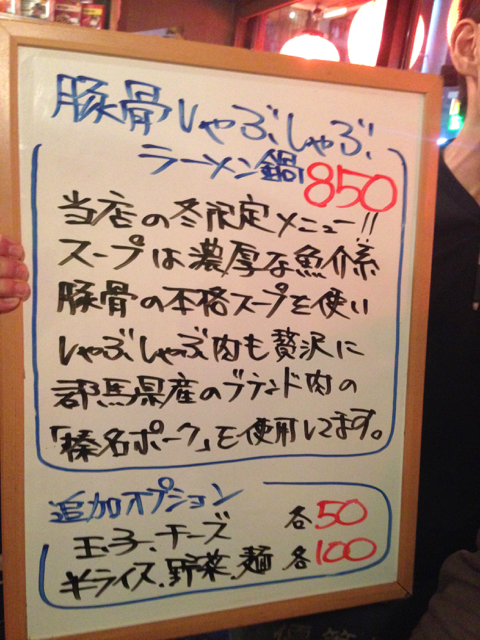 豚骨しゃぶしゃぶ
ラーメン鍋 850
当店の冬限定メニュー!!
スープは濃厚な魚介系
豚骨の本格スープを使い
しゃぶしゃぶ肉も贅沢に
群馬県産のブランド肉の
「榛名ポーク」を使用してます。
追加オプション
玉子、チーズ 各50
半ライス、野菜、麺 各100